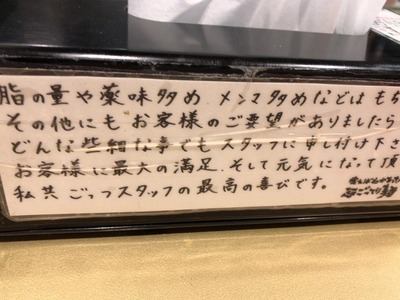 脂の量や薬味多め、メンマ多めなどはもち
その他にもお客様のご要望がありましたら
どんな些細な事でもスタッフに申し付け下さ
お客様に最大の満足、そして元気になって頂
私共ごっつスタッフの最高の喜びです。